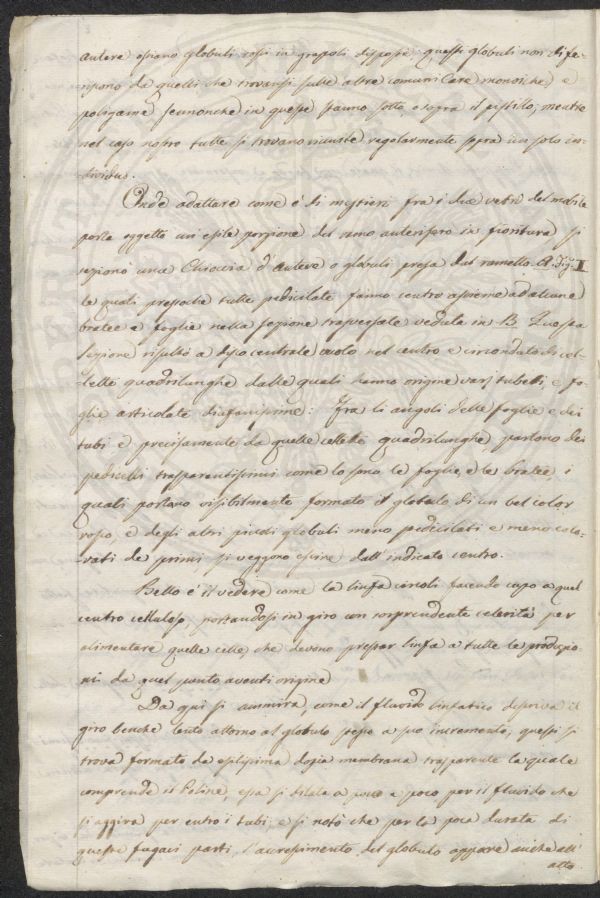 antere ossiano globuli rossi in gregoli disposte, questi globuli non dife-
riscono da quelli che trovansi sulle altre comuni Care monoiche, e
poligame senonche in queste stanno sotto, e sopra il pistilo, mentre
nel caso nostro tutte si trovano riunite regolarmente sopra un solo in-
dividuo.
Onde adattare come è di mestieri fra i due vetri del mobile
porta oggetto un esile porzione del ramo anterifero in fioritura si
sezionò una d'antere o globuli presa dal ramello A. Fig. I
le quali pressoche tutte pedicilate fanno centro assieme ad alcune
bratee e foglie nella sezione trasversale veduta in B. Questa
sezione risultò a disco centrale vuolo nel centro e circondato di cel-
lette quadrilunghe dalle quali hanno origine varj tubetti, e fo-
glie articolate diafanissime: Fra li angoli delle foglie e dei
tubi e precisamente da quelle cellette quadrilunghe, partono dei
pedicilli trasparentissimi come lo sono le foglie, e le bratee, i
quali portano visibilmente formato il globulo di un bel color
rosso, e degli altri piccoli globuli meno pedicilati e meno colo-
rati de primi si veggono escire dall'indicato centro.
Bello è il vedere come la linfa circoli facendo capo a quel
centro celluloso, portandosi in giro con sorprendente celerità per
alimentare quelle celle, che devono prestar linfa a tutte le produzio-
ni da quel punto aventi origine
Da qui si ammira, come il fluido linfatico descriva il
giro benche lento attorno al globulo stesso a suo incremento, questi si
trova formato da esilissima dopia membrana trasparente la quale
comprende il Poline, essa si dilata a poco a poco per il fluido che
si aggira per entro i tubi, e si notò che per la poca durata di
queste fugaci parti, l'acrescimento del globulo appare anche all'
atto